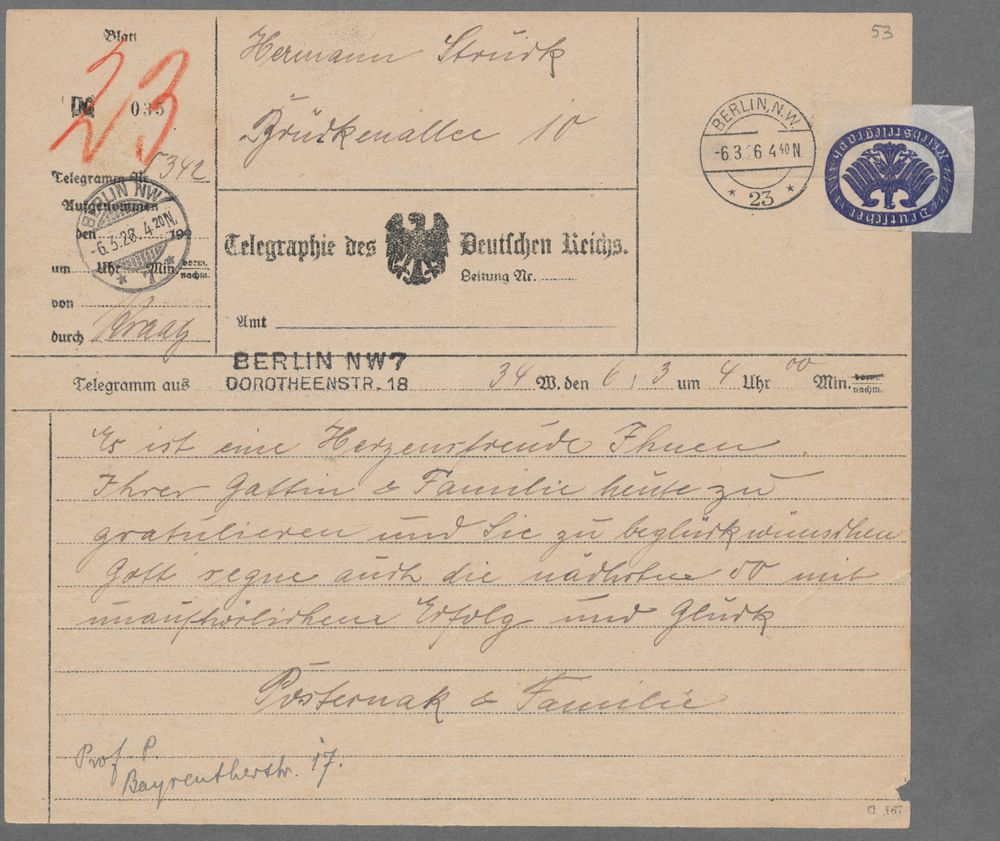 Blatt
23
035
Telegramm Nr. 5342
Aufgenommen
den 192
um Uhr Min. vorm. nachm.
von
durch
BERLIN NW
-6.3.26. 4.20N.
* 7 *
Hermann Struck
Brückenallee 10
Telegraphie des Deutschen Reichs.
Leitung Nr.
Amt
53
BERLIN, N.W.
-6.3.26 4 40 N
* 23 *
Deutscher Reichstelegraph
Telegramm aus
BERLIN NW7
DOROTHEENSTR. 18
34 W. den 6/3 um 4 Uhr 00 Min. vorm. nachm.
Es ist eine Herzensfreude Ihnen
Ihrer Gattin & Familie heute zu
gratulieren und Sie zu beglückwünschen
Gott segne auch die nächsten 50 mit
unaufhörlichene Erfolg und Glück
Posternak & Familie
Prof. P.
Bayreutherstr. 17.
C. 187